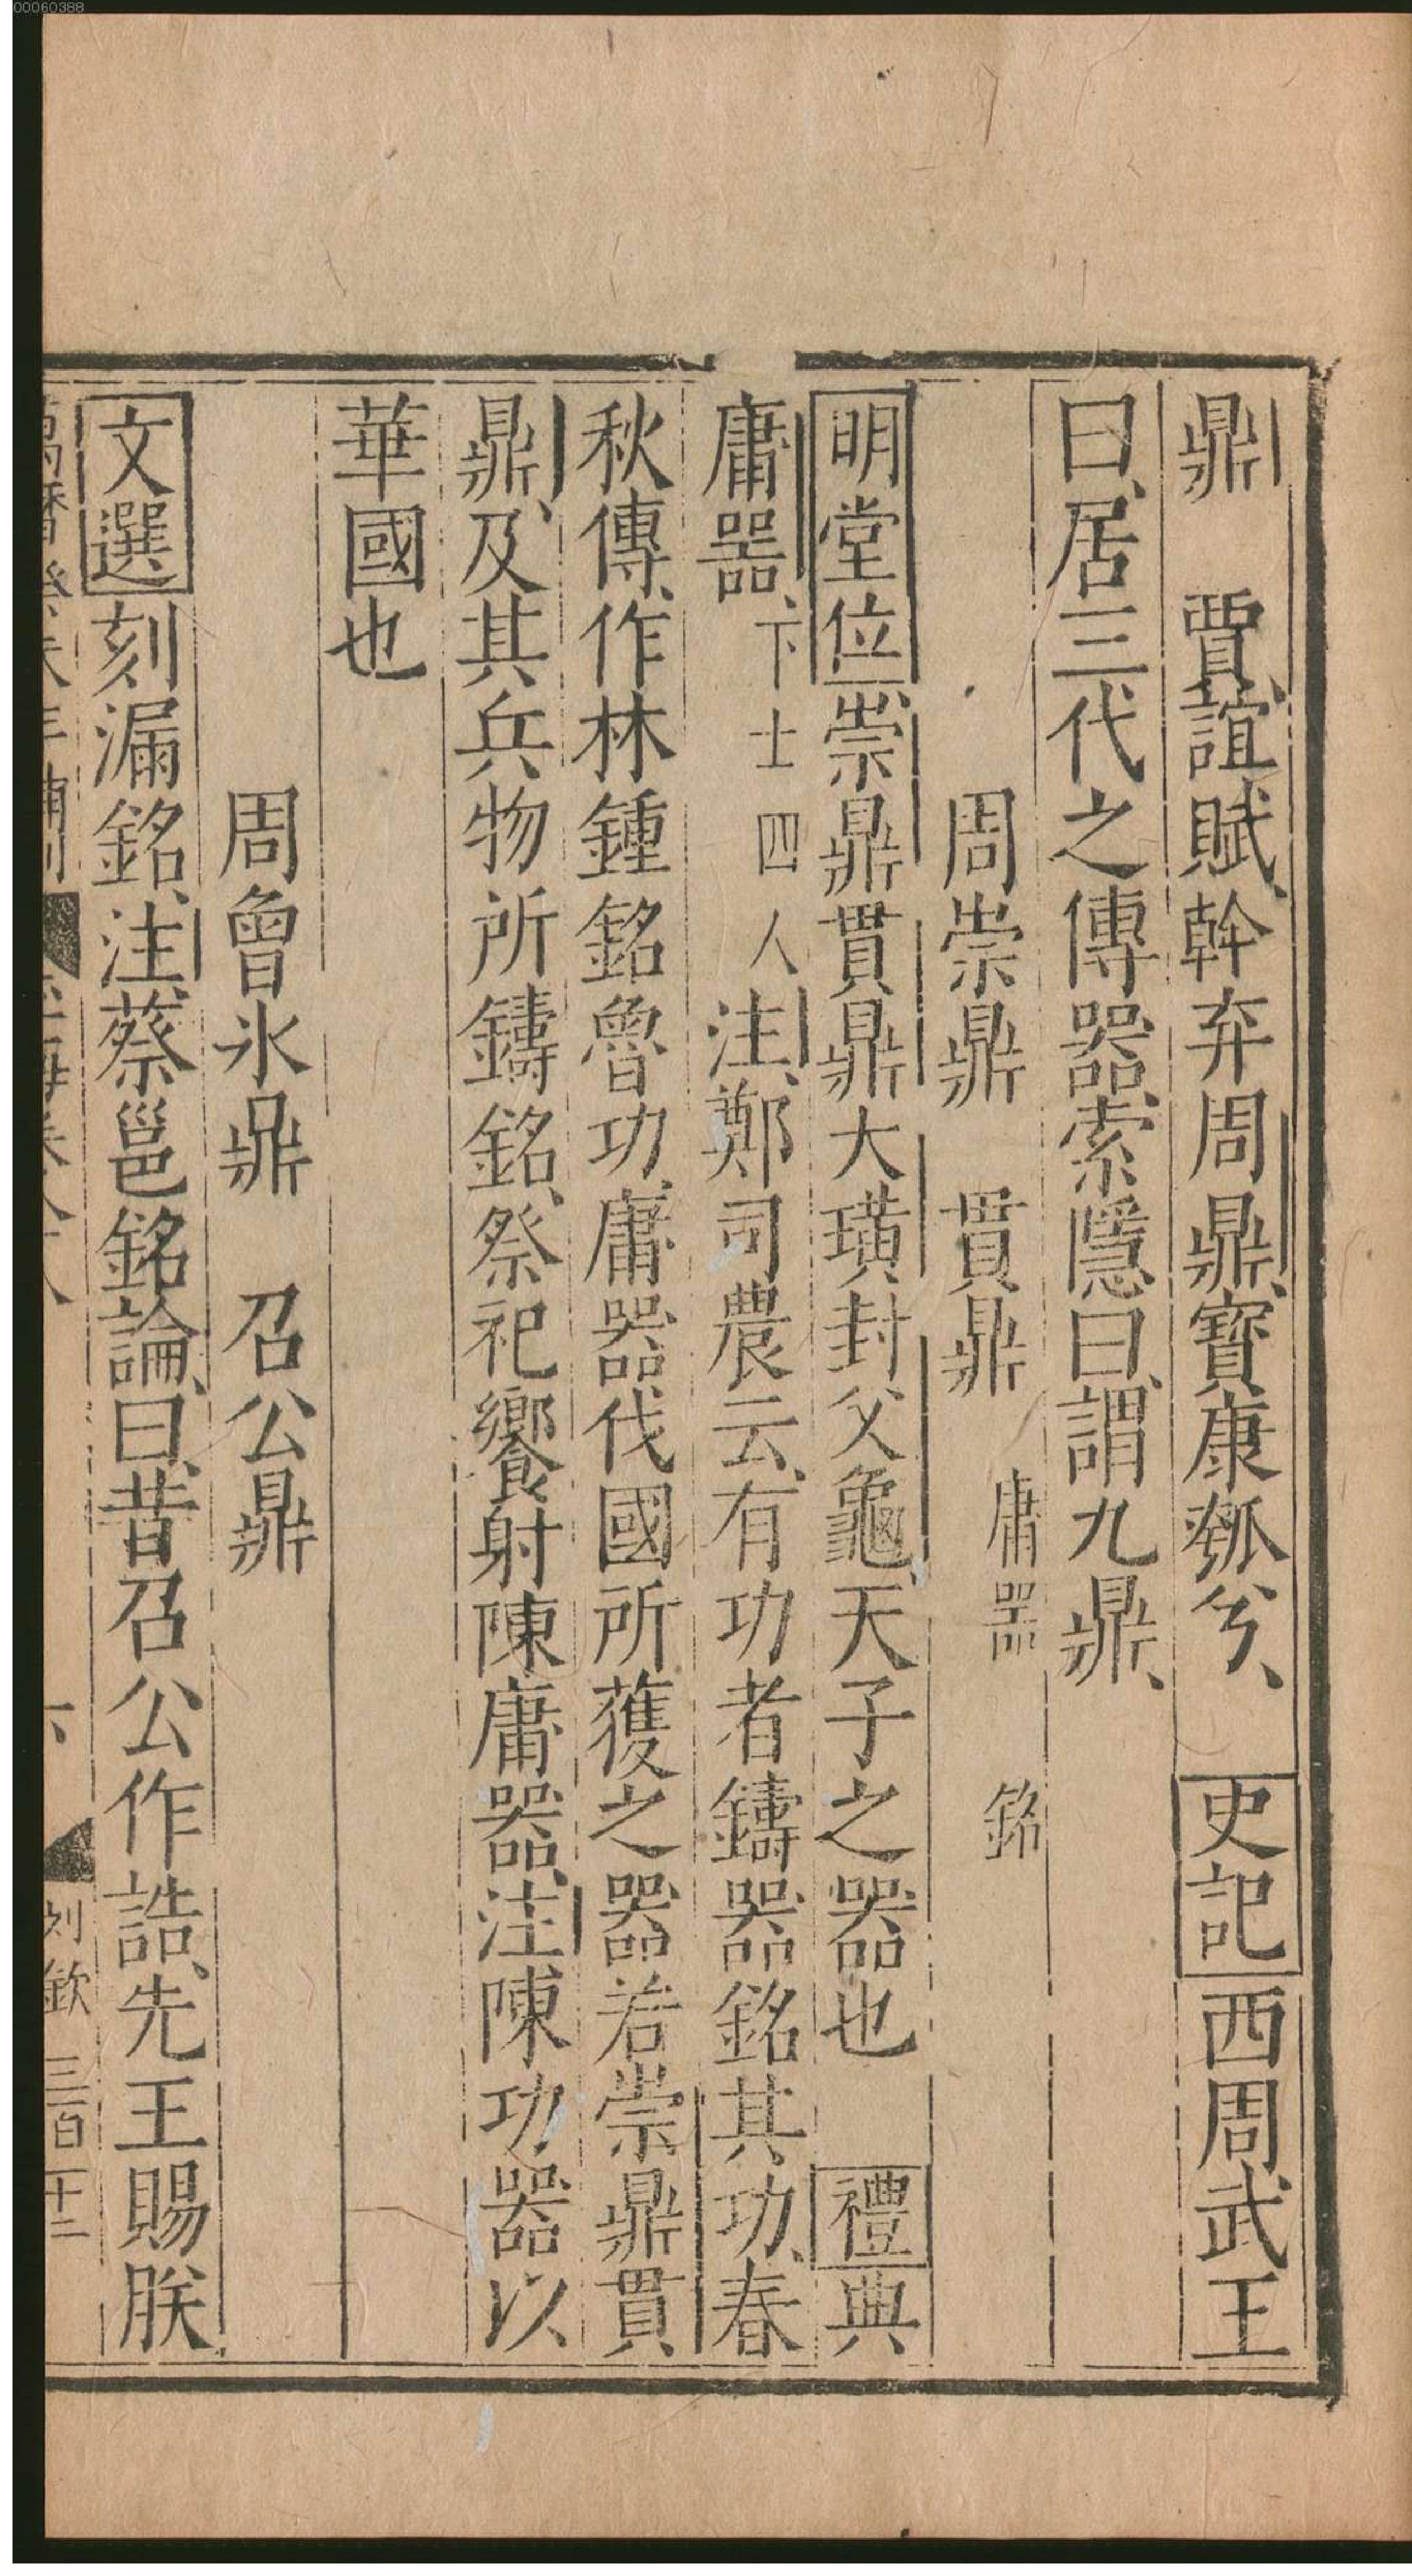 00060388
鼎　賈誼賦、幹弃周鼎、寳康瓠兮、　史記西周武王
曰、居三代之傳器、索隱曰、謂九鼎、
周崇鼎　貫鼎　庸器　銘
明堂位、崇鼎貫鼎大璜封父龜、天子之器也　禮典
庸器、下士四人注、鄭司農云、有功者鑄器銘其功、春
秋傳、作林鍾銘魯功、庸器伐國所獲之器若崇鼎貫
鼎、及其兵物所鑄銘、祭祀饗射陳庸器、注陳功器以
華國也
周曾氷鼎　召公鼎
文選刻漏銘、注、蔡邕銘論、曰、昔召公作誥、先王賜朕
萬曆癸未年補刊　玉海卷八十八　六　刘欽　三百十二